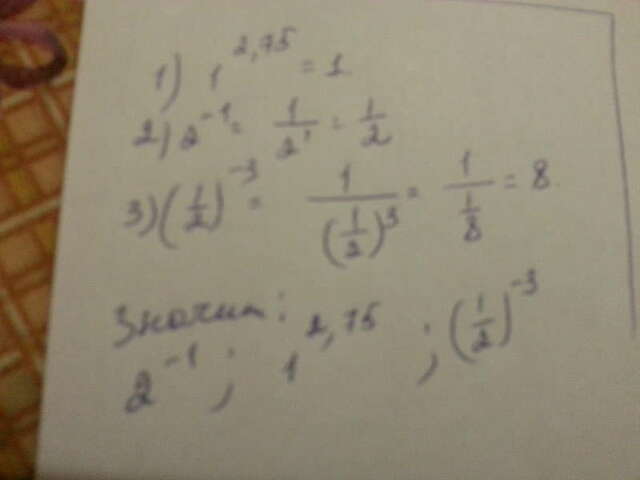 1) 1^2,75 = 1
2) 2^-1 = 1/2^1 = 1/2
3) (1/2)^-3 = 1/(1/2)^3 = 1/(1/8) = 8
Значит:
2^-1 ; 1^2,75 ; (1/2)^-3